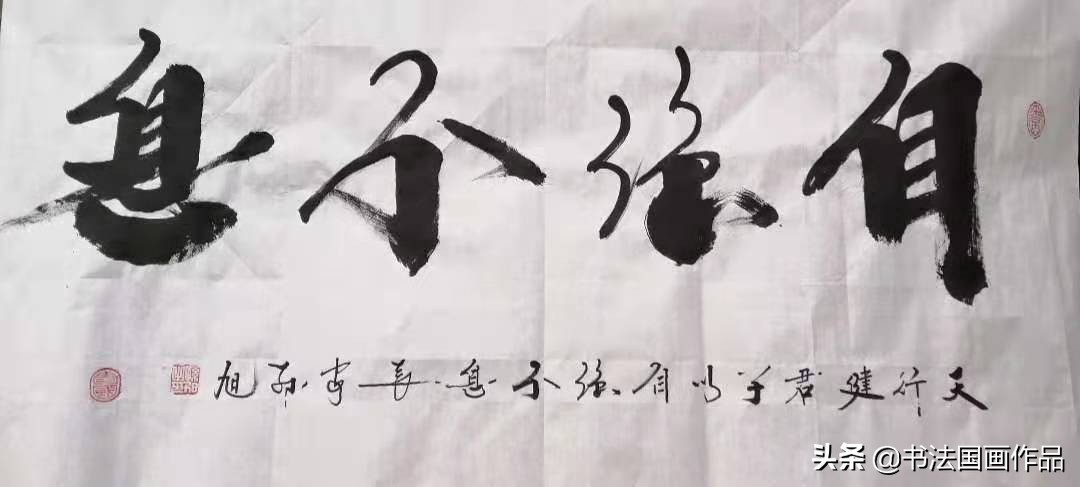 自强不息
天行健君子以自强不息
旭
头条 @书法国画作品